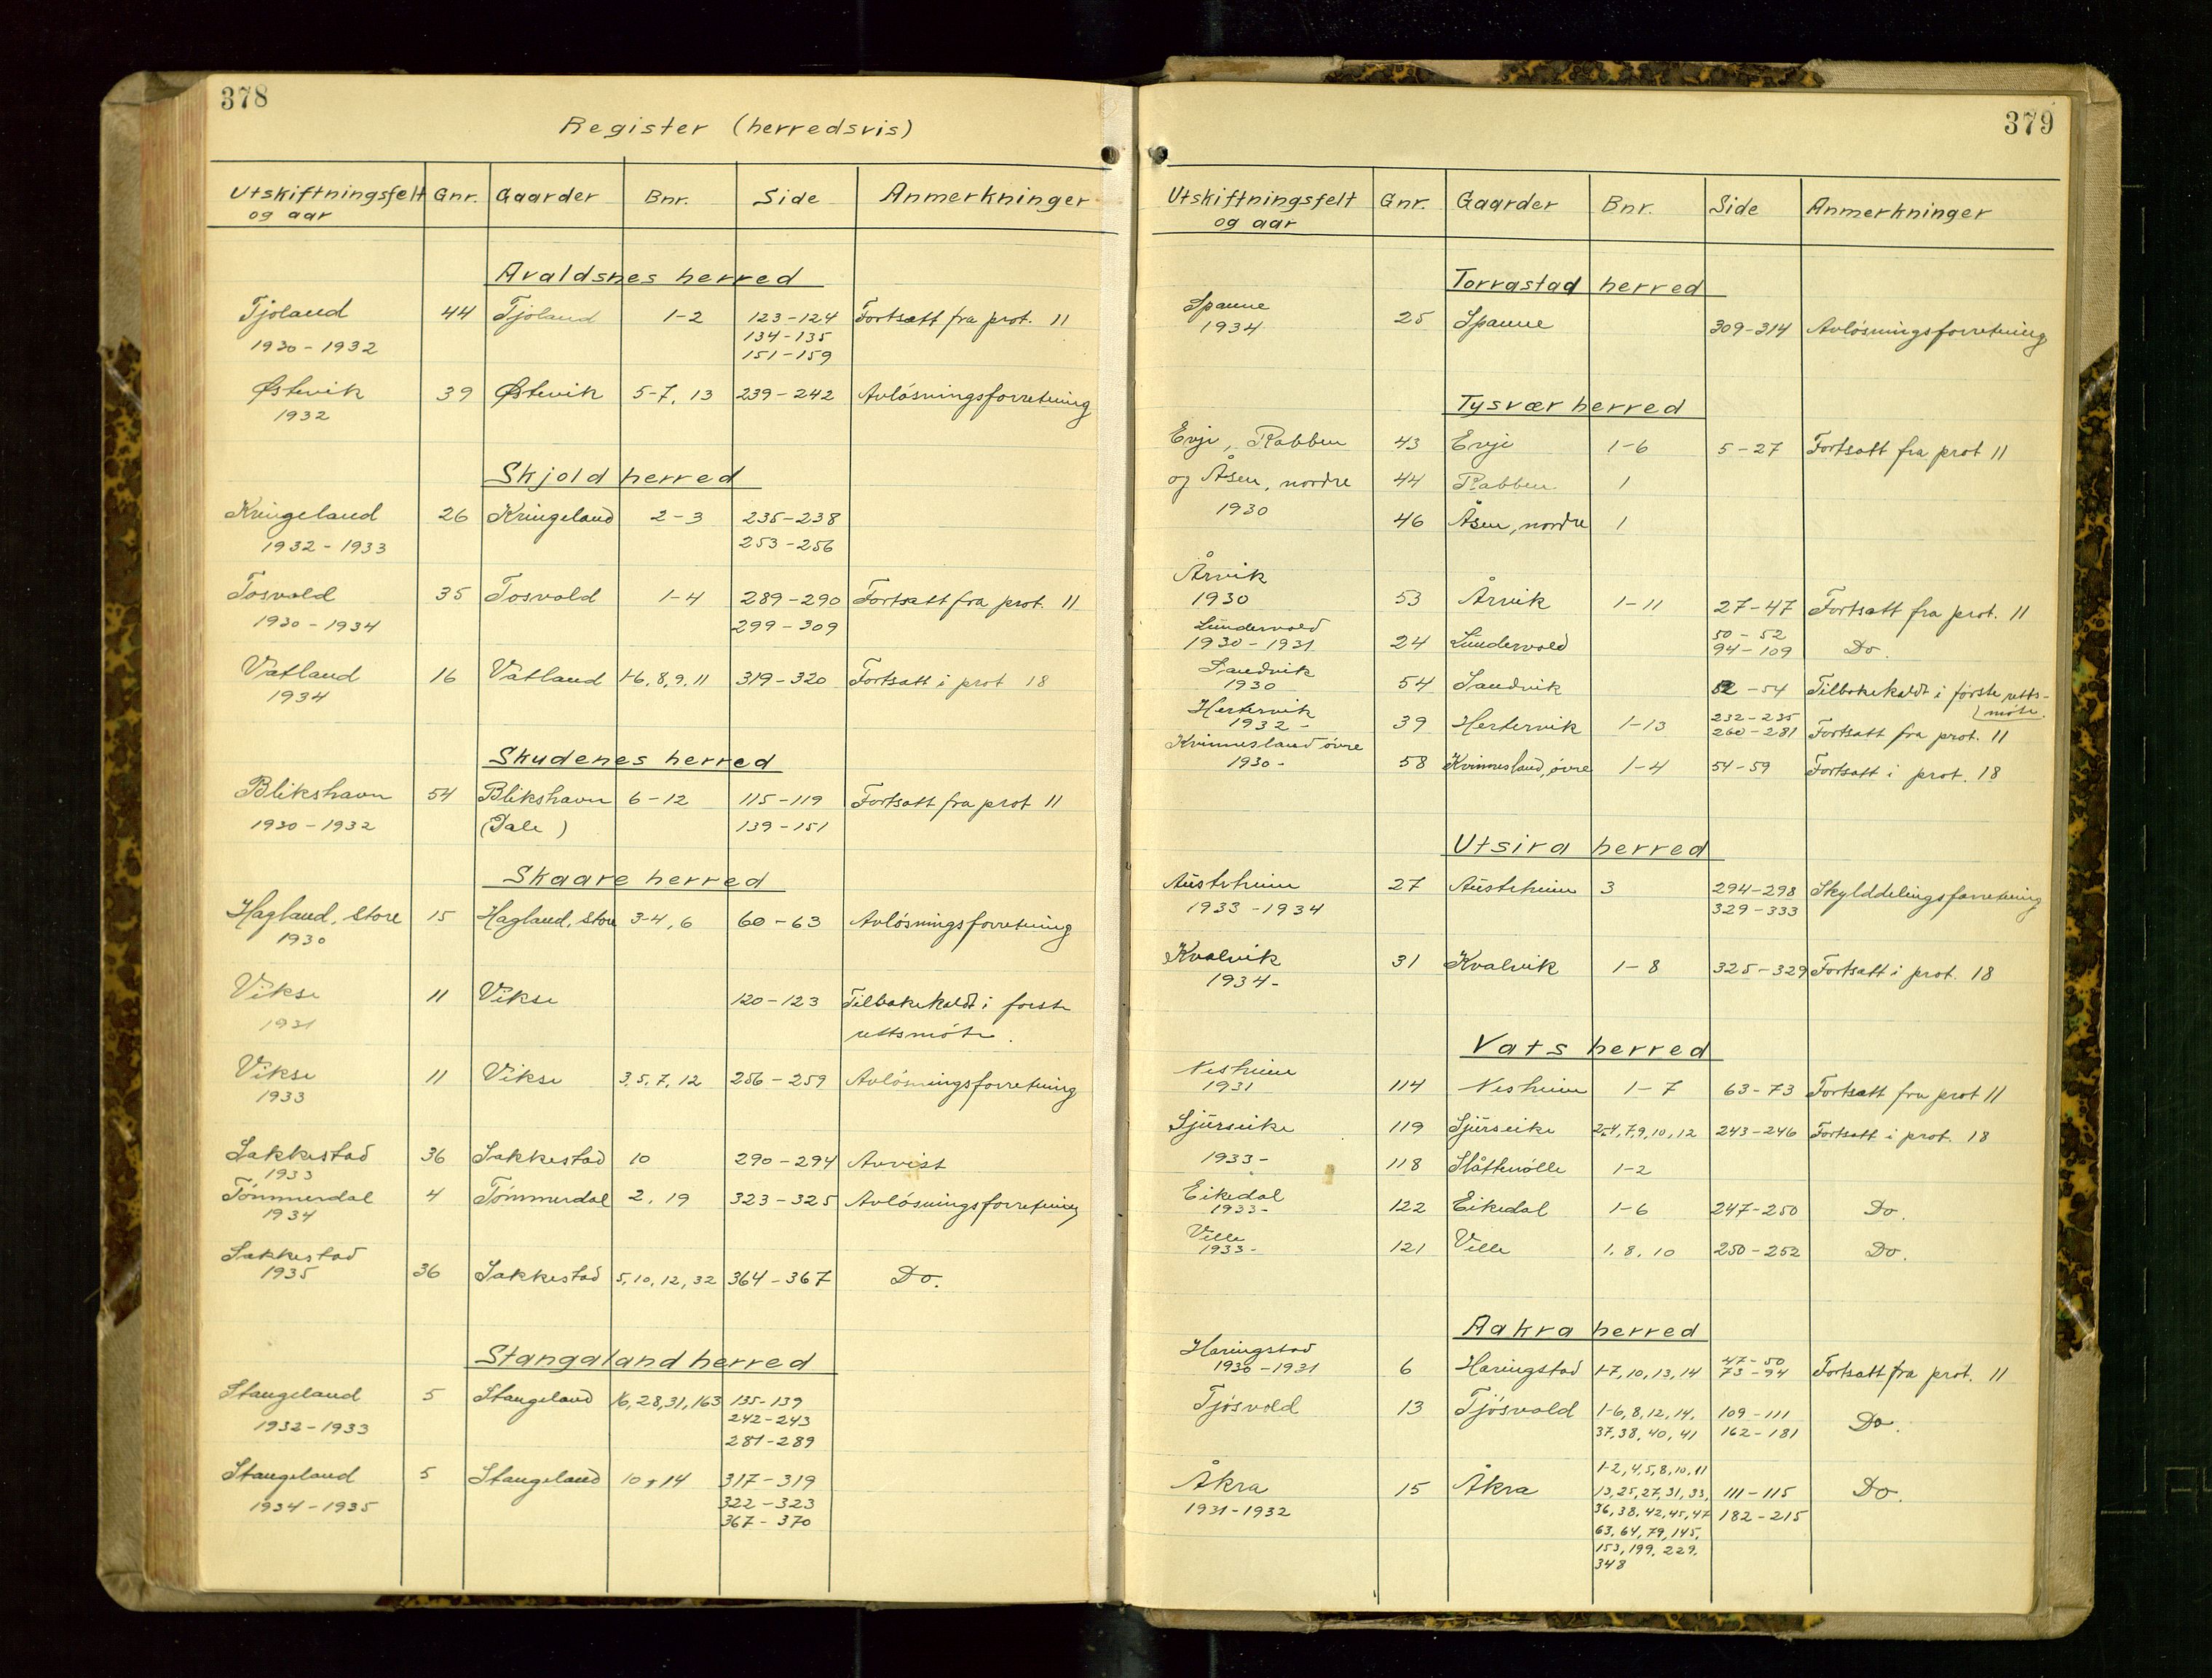 378
Register (herredsvis)
Utskiftningsfelt og aar | Gnr. | Gaarder | Bnr. | Side | Anmerkninger
Avaldsnes herred
Tjoland 44 Tjoland 1-2 123-124 Fortsatt fra prot. 11
1930-1932 134-135
151-159
Østevik 39 Østevik 5-7, 13 239-242 Avlösningsforretning
1932
Skjold herred
Kringeland 26 Kringeland 2-3 235-238
1932-1933 253-256
Tosvold 35 Tosvold 1-4 289-290 Fortsatt fra prot. 11
1930-1934 299-309
Vatland 16 Vatland 1-6, 8, 9, 11 319-320 Fortsatt i prot 18
1934
Skudenes herred
Blikshavn 54 Blikshavn 6-12 115-119 Fortsatt fra prot 11
1930-1932 (Dale) 139-151
Skaare herred
Hagland, Store 15 Hagland, Store 3-4, 6 60-63 Avlösningsforretning
1930
Vikse 11 Vikse 120-123 Tilbakekaldt i förste
1931 rettsmöte.
Vikse 11 Vikse 3, 5, 7, 12 256-259 Avlösningsforretning
1933
Sakkestad 36 Sakkestad 10 290-294 Avvist
1933
Tömmerdal 4 Tömmerdal 2, 19 323-325 Avlösningsforretning
1934
Sakkestad 36 Sakkestad 5, 10, 12, 32 364-367 Do.
1935
Stangaland herred
Stangeland 5 Stangeland 16, 28, 31, 163 135-139
1932-1933 242-243
281-289
Stangeland 5 Stangeland 10, 14 317-319
1934-1935 322-323
367-370
379
Utskiftningsfelt og aar | Gnr. | Gaarder | Bnr. | Side | Anmerkninger
Torrastad herred
Spanne 25 Spanne 309-314 Avlösningsforretning
1934
Tysvær herred
Evje, Rabben 43 Evje 1-6 5-27 Fortsatt fra prot 11
og Åsen, nordre 44 Rabben 1
1930 46 Åsen, nordre 1
Årvik
1930 53 Årvik 1-11 27-47 Fortsatt fra prot. 11
Lundervold 50-52
1930-1931 24 Lundervold 94-109 Do.
Sandvik
1930 54 Sandvik 52-54 Tilbakekaldt i förste retts-
möte.
Hertervik 232-235
1932- 39 Hertervik 1-13 260-281 Fortsatt fra prot. 11
Kvinnesland övre
1930- 58 Kvinnesland, övre 1-4 54-59 Fortsatt i prot. 18
Utsira herred
Austrheim 27 Austrheim 3 294-298 Skylddelingsforretning
1933-1934 329-333
Kvalvik 31 Kvalvik 1-8 325-329 Fortsatt i prot. 18
1934-
Vats herred
Nesheim
1931 114 Nesheim 1-7 63-73 Fortsatt fra prot 11
Sjurseike 119 Sjurseike 2-4, 7, 9, 10, 12 243-246 Fortsatt i prot. 18
1933- 118 Slåttenölle 1-2
Eikedal
1933- 122 Eikedal 1-6 247-250 Do.
Velle
1933- 121 Velle 1, 8, 10 250-252 Do.
Aakra herred
Haringstad 47-50
1930-1931 6 Haringstad 1-7, 10, 13, 14 73-94 Fortsatt fra prot. 11
Tjösvold 13 Tjösvold 1-6, 8, 12, 14, 109-111 Do.
37, 38, 40, 41 162-181
1-2, 4, 5, 8, 10, 11
Åkra 15 Åkra 13, 25, 27, 31, 33, 111-115 Do.
1931-1932 36, 38, 42, 45, 47 182-215
63, 64, 79, 145,
153, 199, 229,
348